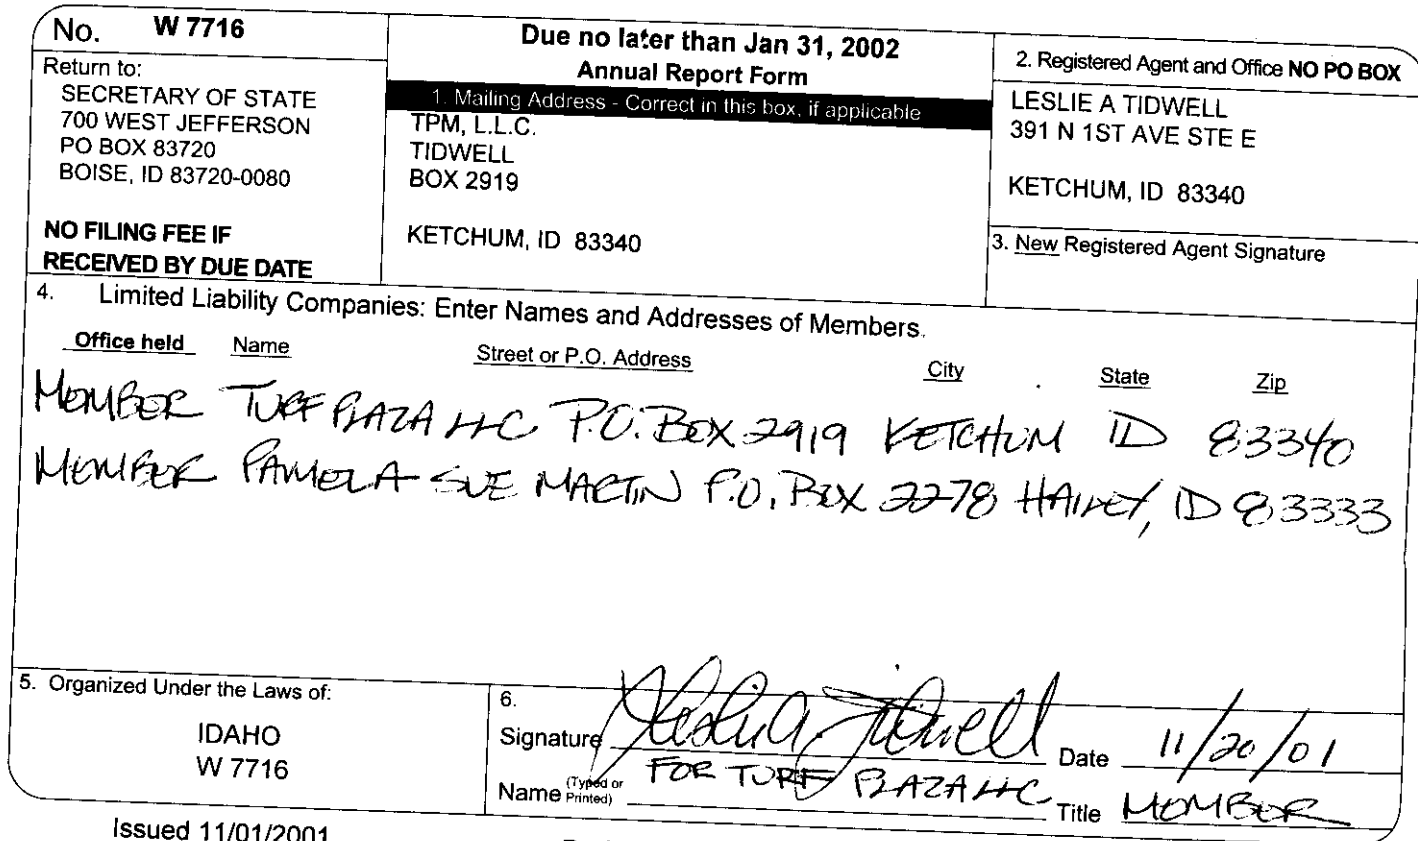 No. W 7716
Return to:
SECRETARY OF STATE
700 WEST JEFFERSON
PO BOX 83720
BOISE, ID 83720-0080
NO FILING FEE IF
RECEIVED BY DUE DATE
Due no later than Jan 31, 2002
Annual Report Form
1. Mailing Address - Correct in this box, if applicable
TPM, L.L.C.
TIDWELL
BOX 2919
KETCHUM, ID 83340
2. Registered Agent and Office NO PO BOX
LESLIE A TIDWELL
391 N 1ST AVE STE E
KETCHUM, ID 83340
3. New Registered Agent Signature
4. Limited Liability Companies: Enter Names and Addresses of Members.
Office held Name Street or P.O. Address City State Zip
MEMBER TURF PLAZA LLC P.O. BOX 2919 KETCHUM ID 83340
MEMBER PAMELA SUE MARTIN P.O. BOX 2278 HAILEY, ID 83333
5. Organized Under the Laws of:
IDAHO
W 7716
6.
Signature Leslie A Tidwell Date 11/20/01
Name (Typed or Printed) FOR TURF PLAZA LLC Title MEMBER
Issued 11/01/2001